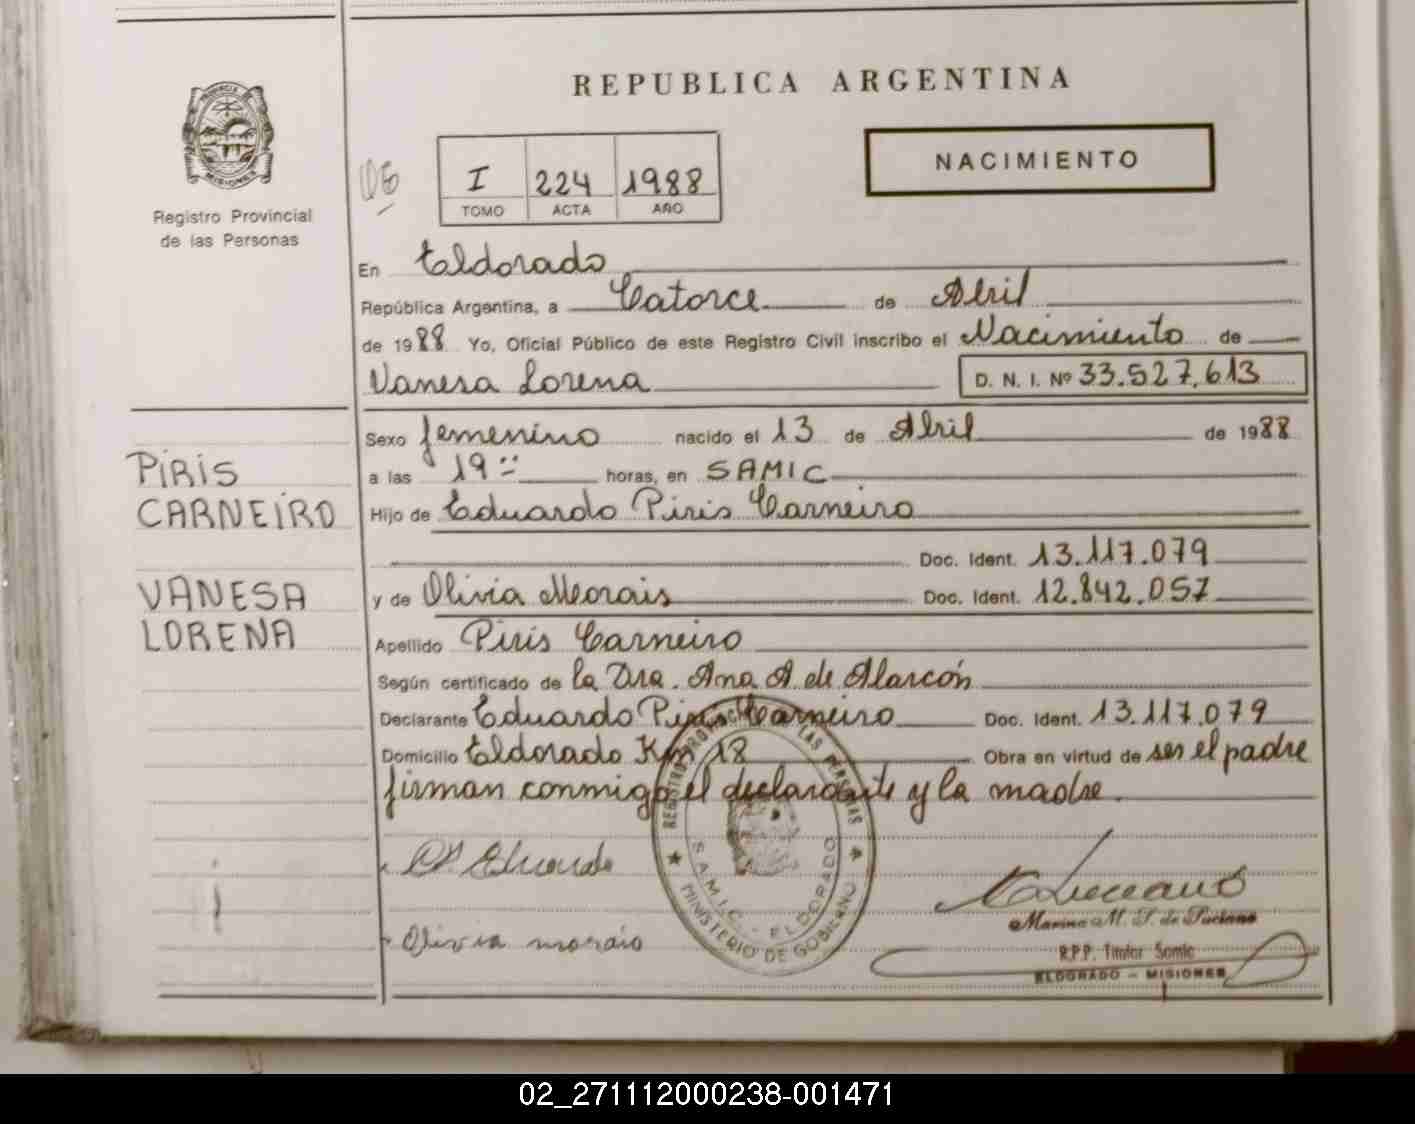 REPUBLICA ARGENTINA
PROVINCIA DE
MISIONES
Registro Provincial
de las Personas
NACIMIENTO
I 224 1988
TOMO ACTA AÑO
En Eldorado
República Argentina, a Catorce de Abril
de 1988 Yo, Oficial Público de este Registro Civil inscribo el Nacimiento de
Vanesa Lorena D. N. I. Nº 33.527.613
Sexo femenino nacido el 13 de Abril de 1988
a las 19 horas, en SAMIC
PIRIS
CARNEIRO
Hijo de Eduardo Piris Carneiro
Doc. Ident. 13.117.079
VANESA
LORENA
y de Olivia Morais Doc. Ident. 12.842.057
Apellido Piris Carneiro
Según certificado de la Dra. Ana A de Alarcón
Declarante Eduardo Piris Carneiro Doc. Ident. 13.117.079
Domicilio Eldorado Km 18 Obra en virtud de ser el padre
firman conmigo el declarante y la madre.
REGISTRO PROVINCIAL DE LAS PERSONAS
S.A.M.I.C. - ELDORADO
MINISTERIO DE GOBIERNO
Eduardo
Olivia morais
Marina M. T. de Luciano
R.P.P. Titular Samic
ELDORADO - MISIONES
02_271112000238-001471